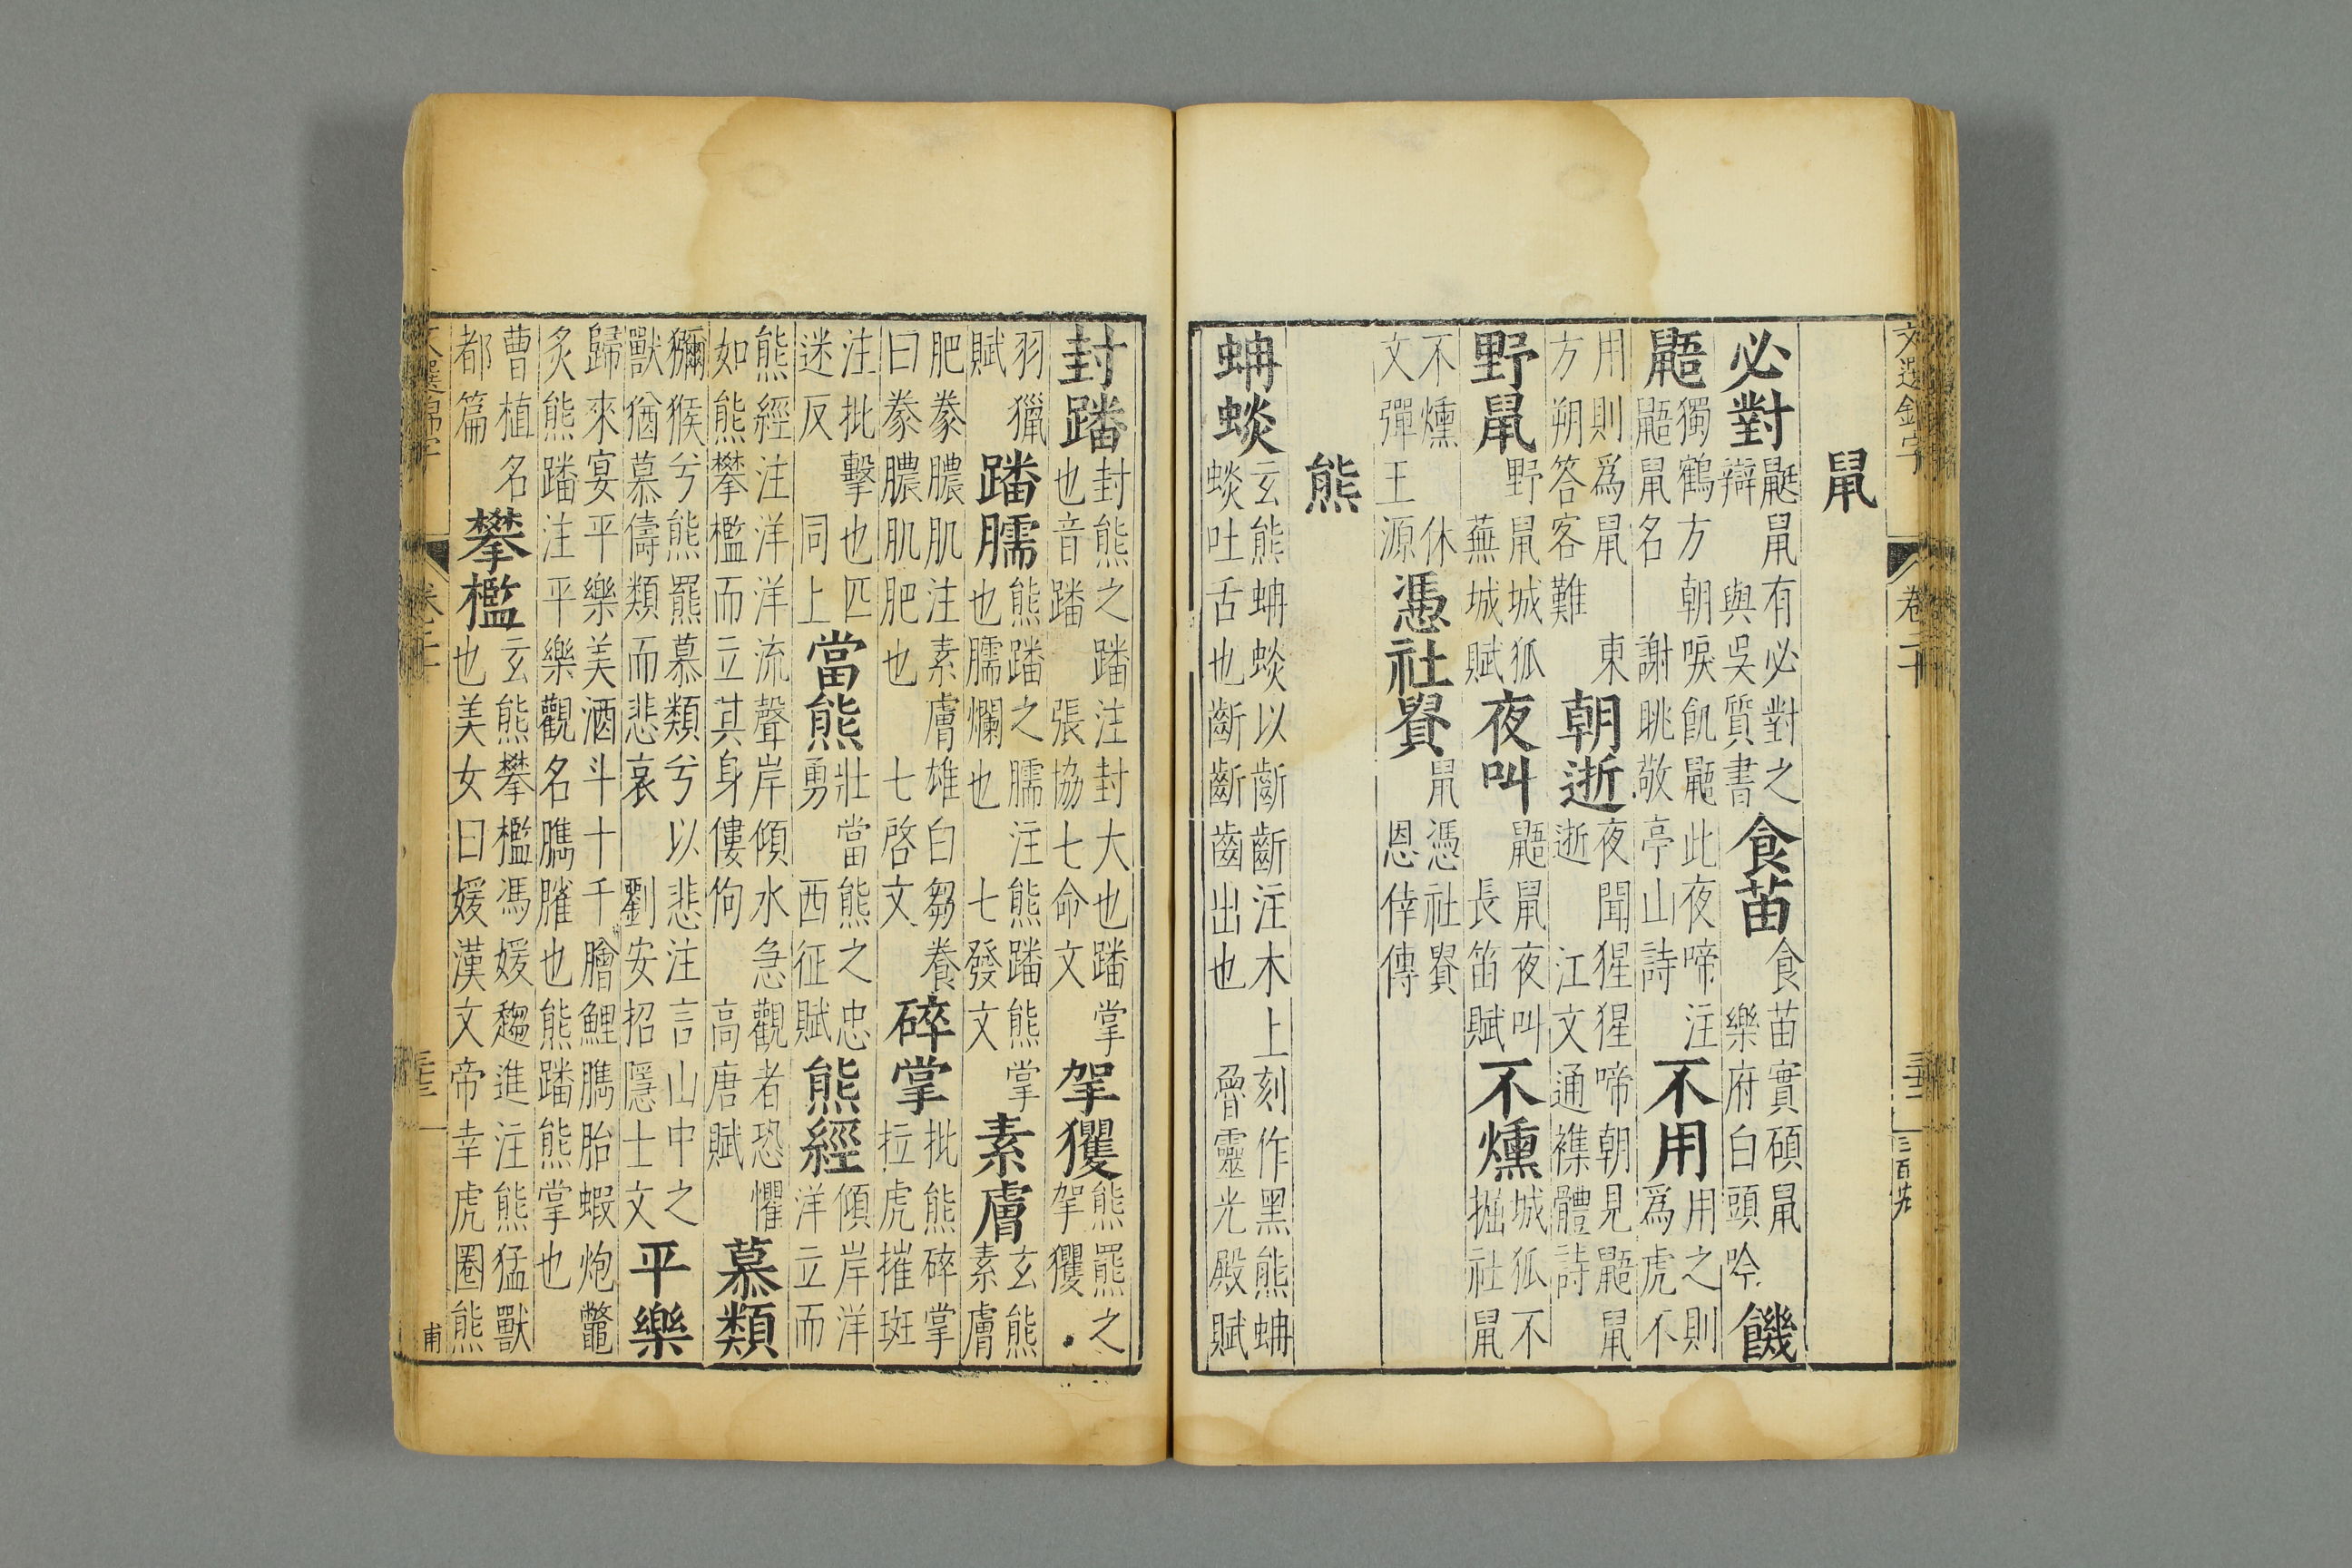 文選錦字 卷二十 三百廿
鼠
必對鼮鼠有必對之辯與吳質書食苗食苗實碩鼠樂府白頭吟饑
鼯獨鶴方朝唳飢鼯此夜啼注鼯鼠名謝眺敬亭山詩不用用之則爲虎不
用則爲鼠東方朔答客難朝逝夜聞猩猩啼朝見鼯鼠逝江文通襍體詩
野鼠野鼠城狐蕪城賦夜叫鼯鼠夜叫長笛賦不燻城狐不掘社鼠
不燻休文彈王源憑社貴鼠憑社貴恩倖傳
熊
蚺玄熊蚺以齗齗注木上刻作黑熊蚺吐舌也齗齗齒出也魯靈光殿賦
封蹯封熊之蹯注封大也蹯掌也音蹯張協七命文挐玃熊羆之挐玃
羽獵賦蹯臑熊蹯之臑注熊蹯熊掌也臑爛也七發文素膚玄熊素膚
肥豢膿肌注素膚雄白芻養曰豢膿肌肥也七啓文碎掌批熊碎掌拉虎摧斑
注批擊也匹迷反同上當熊壯當熊之忠勇西征賦熊經傾岸洋洋立而
熊經注洋洋流聲岸傾水急觀者恐懼如熊攀檻而立其身僂佝高唐賦慕類
獼猴兮熊羆慕類兮以悲注言山中之獸猶慕儔類而悲哀劉安招隱士文平樂
歸來宴平樂美酒斗十千膾鯉臇胎蝦炮鼈炙熊蹯注平樂觀名臇臛也熊蹯熊掌也
曹植名都篇攀檻玄熊攀檻馮媛趨進注熊猛獸也美女曰媛漢文帝幸虎圈熊
甫